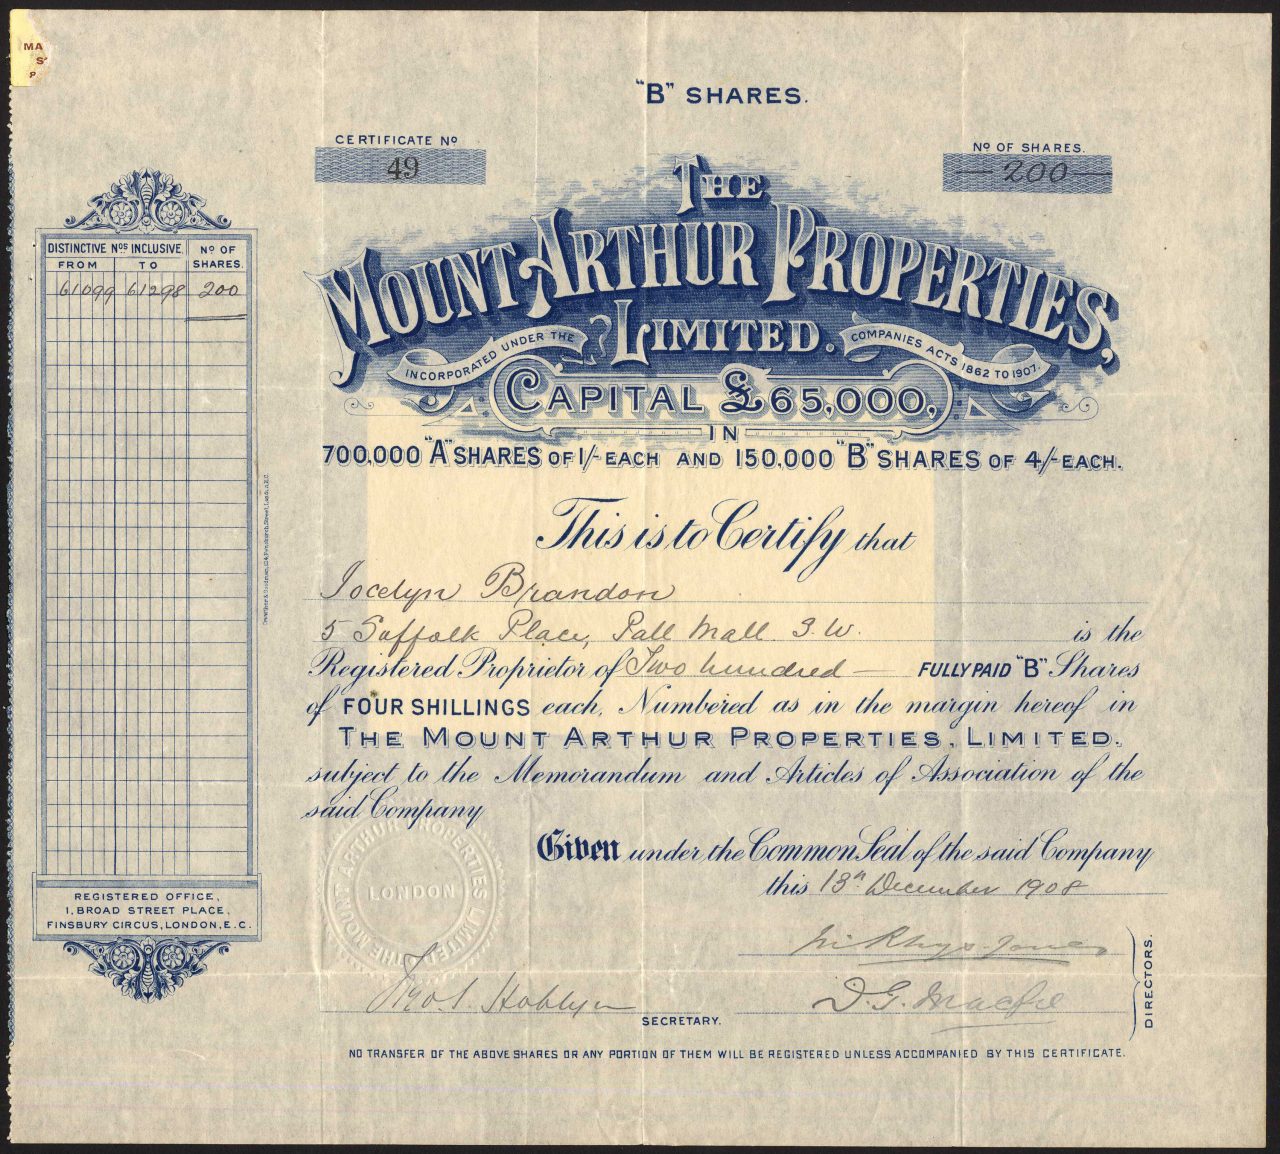 MA
S'
P
"B" SHARES.
CERTIFICATE Nº
49
Nº OF SHARES.
200
THE
MOUNT ARTHUR PROPERTIES,
LIMITED.
INCORPORATED UNDER THE
COMPANIES ACTS 1862 TO 1907.
CAPITAL £65,000,
IN
700,000 "A" SHARES OF 1/- EACH AND 150,000 "B" SHARES OF 4/- EACH.
DISTINCTIVE Nºˢ INCLUSIVE. Nº OF
FROM TO SHARES.
61099 61298 200
This is to Certify that
Jocelyn Brandon
5 Suffolk Place, Pall Mall S.W. is the
Registered Proprietor of Two hundred — FULLY PAID "B" Shares
of FOUR SHILLINGS each, Numbered as in the margin hereof in
THE MOUNT ARTHUR PROPERTIES, LIMITED.
subject to the Memorandum and Articles of Association of the
said Company
Given under the Common Seal of the said Company
this 18th December 1908
THE MOUNT ARTHUR PROPERTIES LIMITED
LONDON
REGISTERED OFFICE,
1, BROAD STREET PLACE,
FINSBURY CIRCUS, LONDON, E.C.
Rhys-Jones
Hoblyn
D. G. Macfie
SECRETARY.
DIRECTORS.
NO TRANSFER OF THE ABOVE SHARES OR ANY PORTION OF THEM WILL BE REGISTERED UNLESS ACCOMPANIED BY THIS CERTIFICATE.